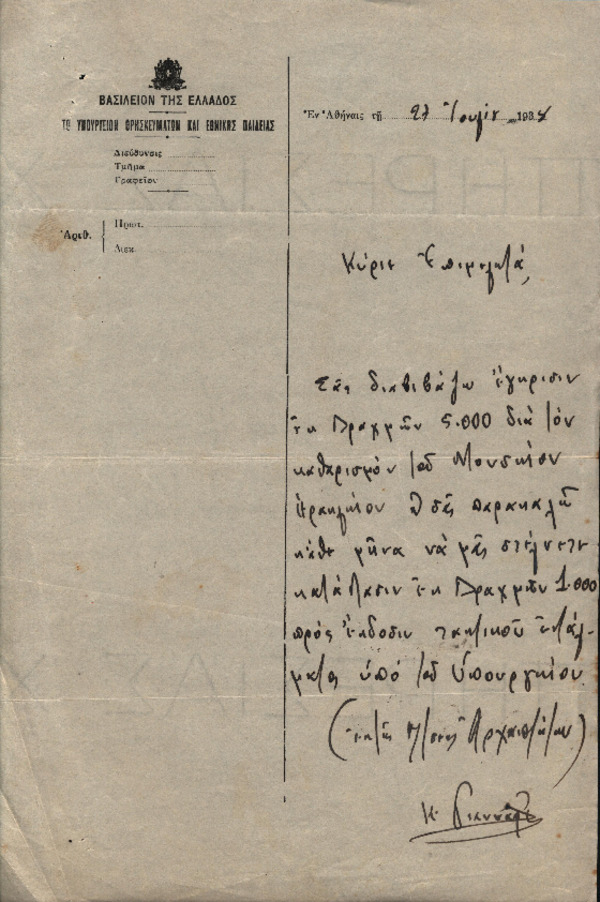 ΒΑΣΙΛΕΙΟΝ ΤΗΣ ΕΛΛΑΔΟΣ
ΤΟ ΥΠΟΥΡΓΕΙΟΝ ΘΡΗΣΚΕΥΜΑΤΩΝ ΚΑΙ ΕΘΝΙΚΗΣ ΠΑΙΔΕΙΑΣ
Διεύθυνσις
Τμῆμα
Γραφεῖον
Ἀριθ.
Πρωτ.
Διεκ.
Ἐν Ἀθήναις τῇ 27 193
Κύριε Ἐπιμελητά,
Σᾶς διαβιβάζω ἔγκρισιν
ἐκ Δραχμῶν 5.000 διὰ τὸν
καθαρισμὸν τοῦ Μουσείου
Ἡρακλείου & σᾶς παρακαλῶ
κάθε μῆνα νὰ μᾶς στέλνετε
κατάστασιν ἐκ Δραχμῶν 1.000
πρὸς ἔκδοσιν τακτικοῦ ἐντάλ-
ματος ὑπὸ τοῦ Ὑπουργείου